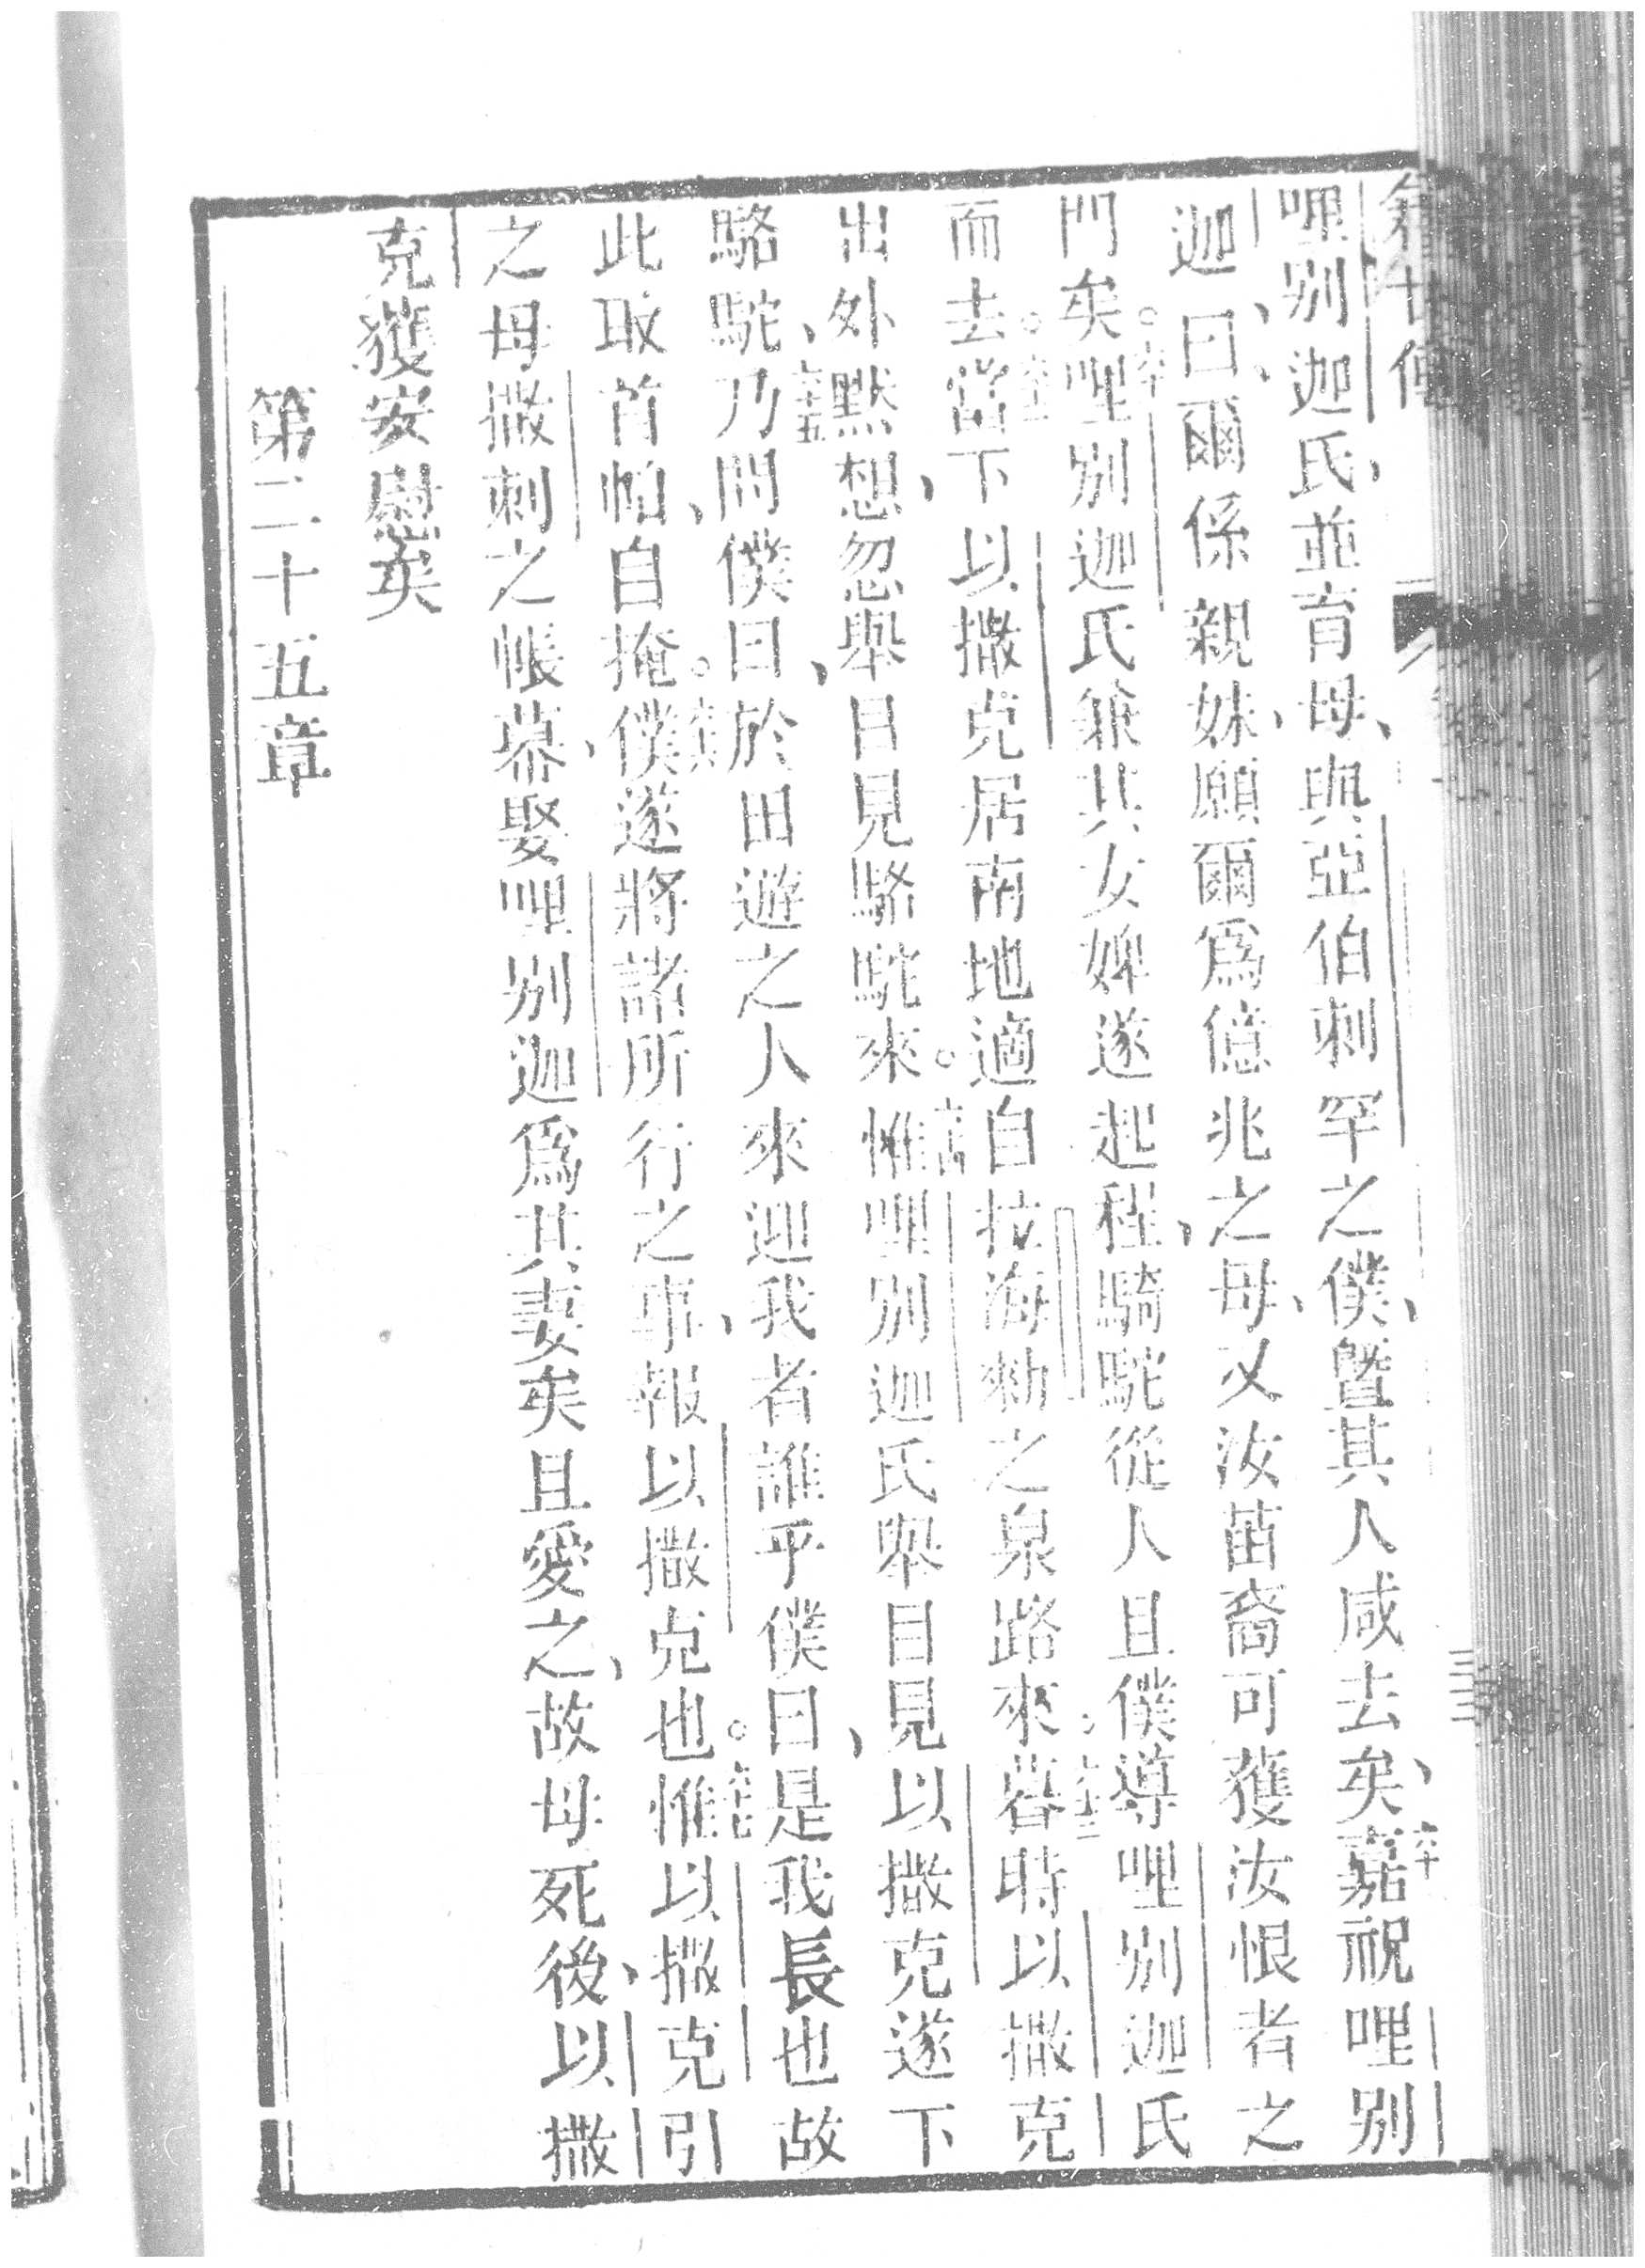 哩別迦氏、並育母、與亞伯剌罕之僕、曁其人咸去矣、六十嘉祝哩別
迦、曰、爾係親妹、願爾爲億兆之母、又汝苗裔可獲汝恨者之
門矣。六一哩別迦氏兼其女婢遂起程、騎駝從人且僕導哩別迦氏
而去。六二當下以撒克居南地適自拉海勑之泉路來。六三暮時以撒克
出外默想、忽舉目見駱駝來。六四惟哩別迦氏舉目見以撒克遂下
駱駝、六十五乃問僕曰、於田遊之人來迎我者誰乎僕曰、是我長也故
此取首帕、自掩。六六僕遂將諸所行之事、報以撒克也。六七惟以撒克引
之母撒剌之帳幕、娶哩別迦爲其妻矣且愛之、故母死後、以撒
克獲安慰矣
第二十五章